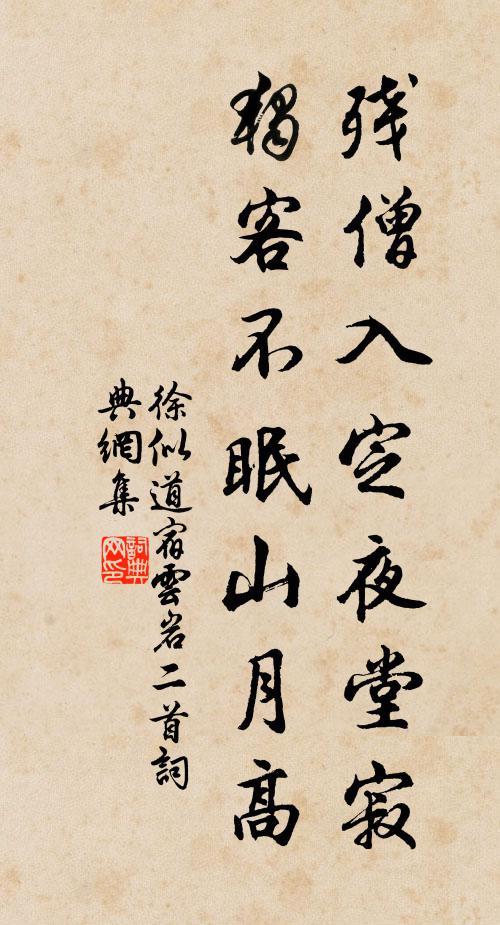 残僧入定夜堂寂
独客不眠山月高
徐似道宿雲岩二首詞
典網集
詞典
网印